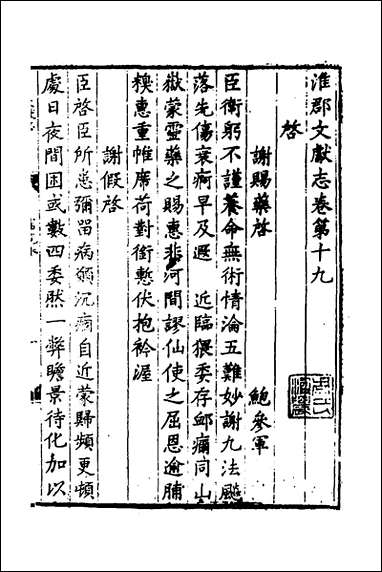 淮郡文獻志卷第十九
啓
謝賜藥啓 鮑參軍
臣衛躬不謹養命無術情淪五難妙謝九法飈
落先傷衰痾早及遐 近臨猥委存邺痛同山
嶽蒙靈藥之賜惠非河間謬仙使之屈恩逾脯
糗惠重帷席荷對銜慙伏抱衿渥
謝假啓
臣啓臣所患彌留病躺沉痼自近蒙歸頻更頓
處日夜間困或數四委然一弊瞻景待化加以